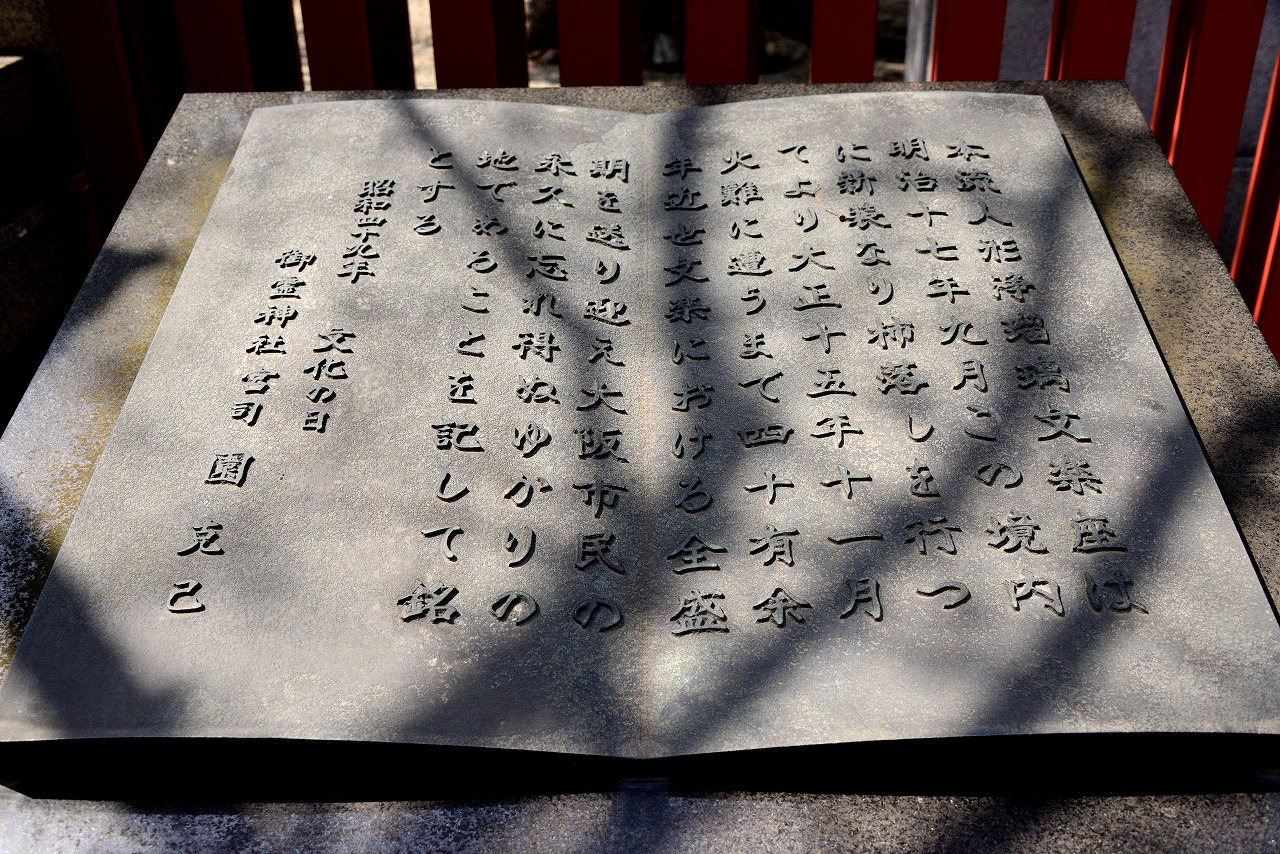 本流人形浄瑠璃文楽座は
明治十七年九月この境内
に新装なり柿落しを行つ
てより大正十五年十一月
火難に遭うまで四十有余
年近世文楽における全盛
期を送り迎え大阪市民の
永久に忘れ得ぬゆかりの
地であることを記して銘
とする
昭和四十九年
文化の日
御霊神社宮司
園克己